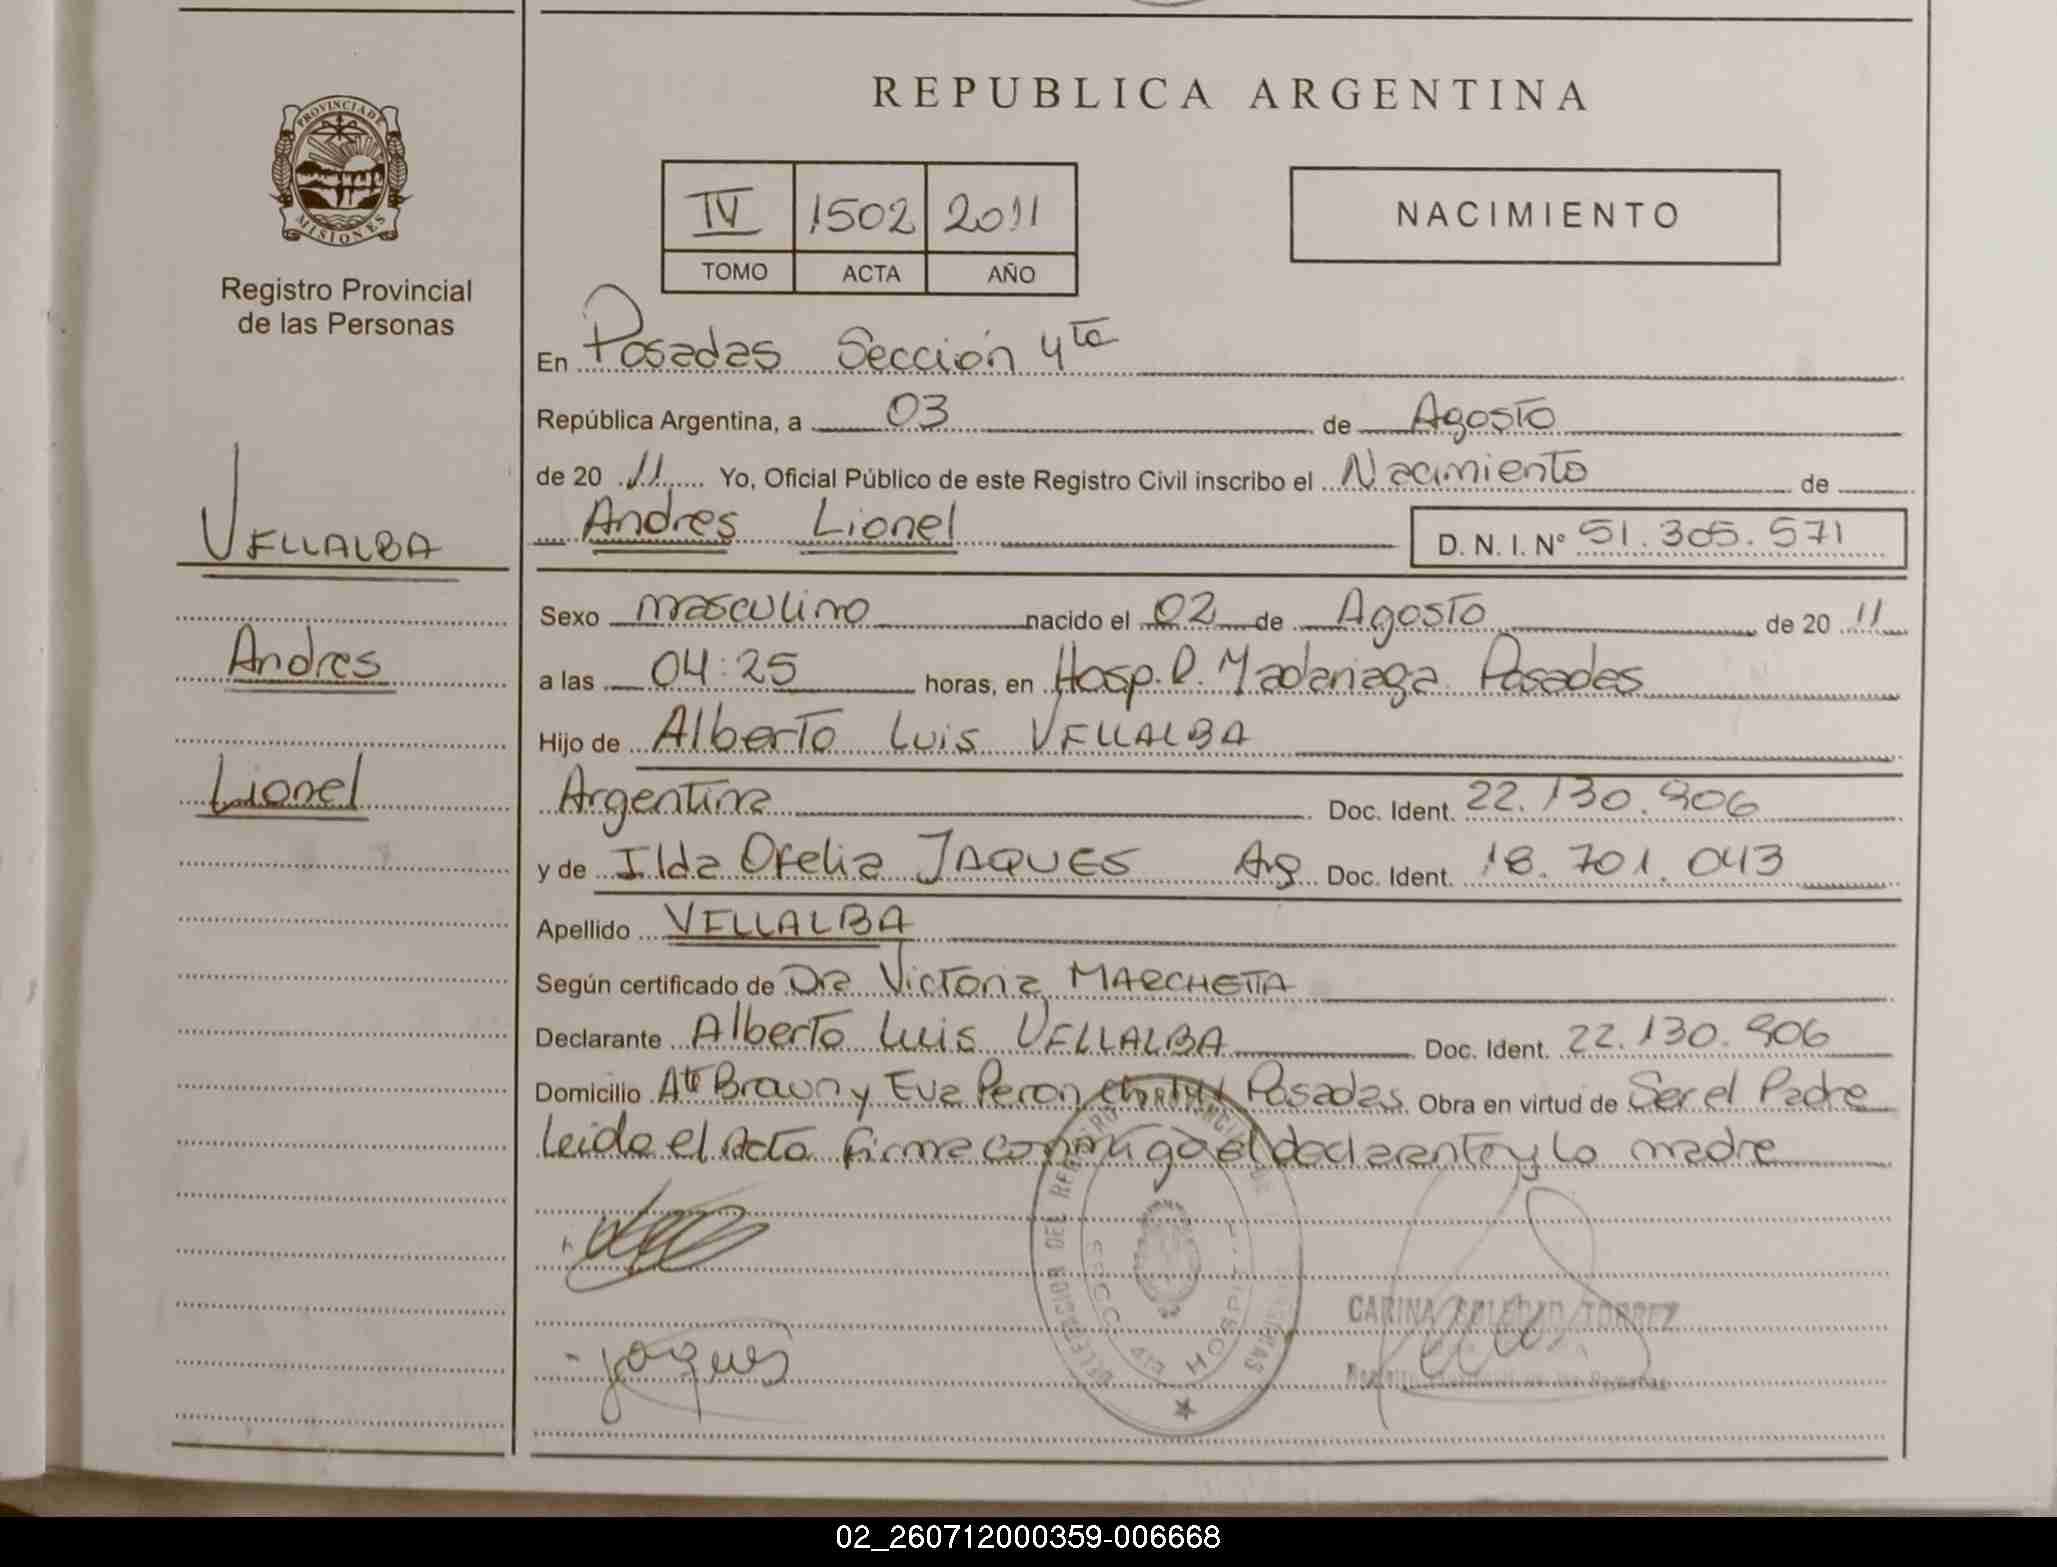 REPUBLICA ARGENTINA
PROVINCIA DE MISIONES
Registro Provincial
de las Personas
IV 1502 2011
TOMO ACTA AÑO
NACIMIENTO
En Posadas Sección 4ta
República Argentina, a 03 de Agosto
de 20 11 Yo, Oficial Público de este Registro Civil inscribo el Nacimiento de
Andres Lionel D. N. I. Nº 51.305.571
VELLALBA
Andres
Lionel
Sexo masculino nacido el 02 de Agosto de 20 11
a las 04:25 horas, en Hosp. D. Madariaga Posadas
Hijo de Alberto Luis VELLALBA
Argentina Doc. Ident. 22.130.906
y de Ilda Ofelia JAQUES Arg Doc. Ident. 18.701.043
Apellido VELLALBA
Según certificado de Dra Victoria MARCHETTA
Declarante Alberto Luis VELLALBA Doc. Ident. 22.130.906
Domicilio Ate Brown y Eva Peron Posadas Obra en virtud de Ser el Padre
Leida el Acta firma conmigo el declarante y la madre
DELEGACION DEL REGISTRO
SECC. 4ta HOSPITAL
Jaques
CARINA SOLEDAD TORREZ
02_260712000359-006668